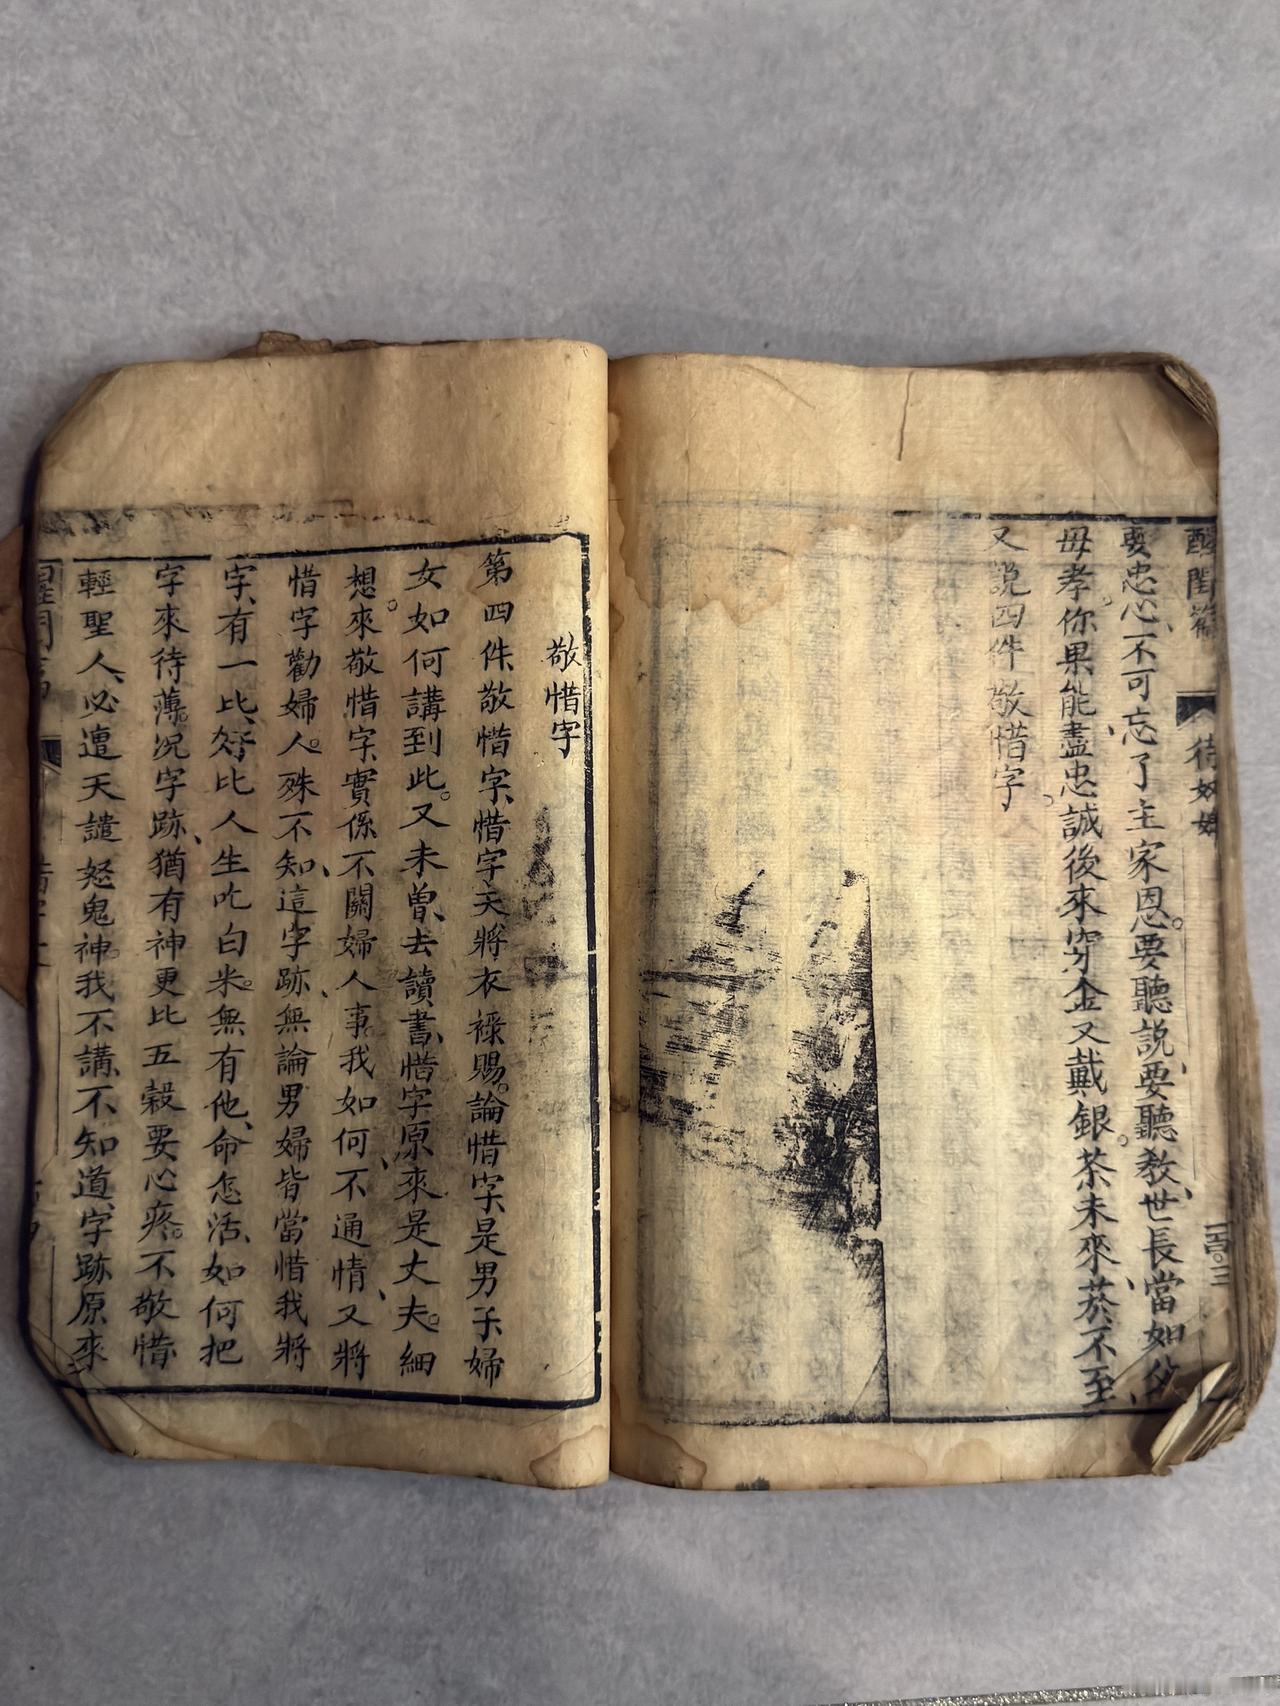 醒閨篇 待奴婢
要忠心、不可忘了主家恩。要聽說、要聽教、世長當如父
母孝。你果能、盡忠誠、後來穿金又戴銀。茶未來、菸不至、
又說四件敬惜字。
敬惜字
第四件、敬惜字、惜字天將衣祿賜。論惜字、是男子、婦
女如何講到此。又未曾、去讀書、惜字原來是丈夫。細
想來、敬惜字、實係不關婦人事。我如何、不通情、又將
惜字勸婦人。殊不知、這字跡、無論男婦皆當惜、我將
字、有一比、好比人生吃白米。無有他、命怎活、如何把
字來待薄。況字跡、猶有神、更比五穀要心疼。不敬惜、
輕聖人、必遭天譴怒鬼神。我不講、不知道、字跡原來